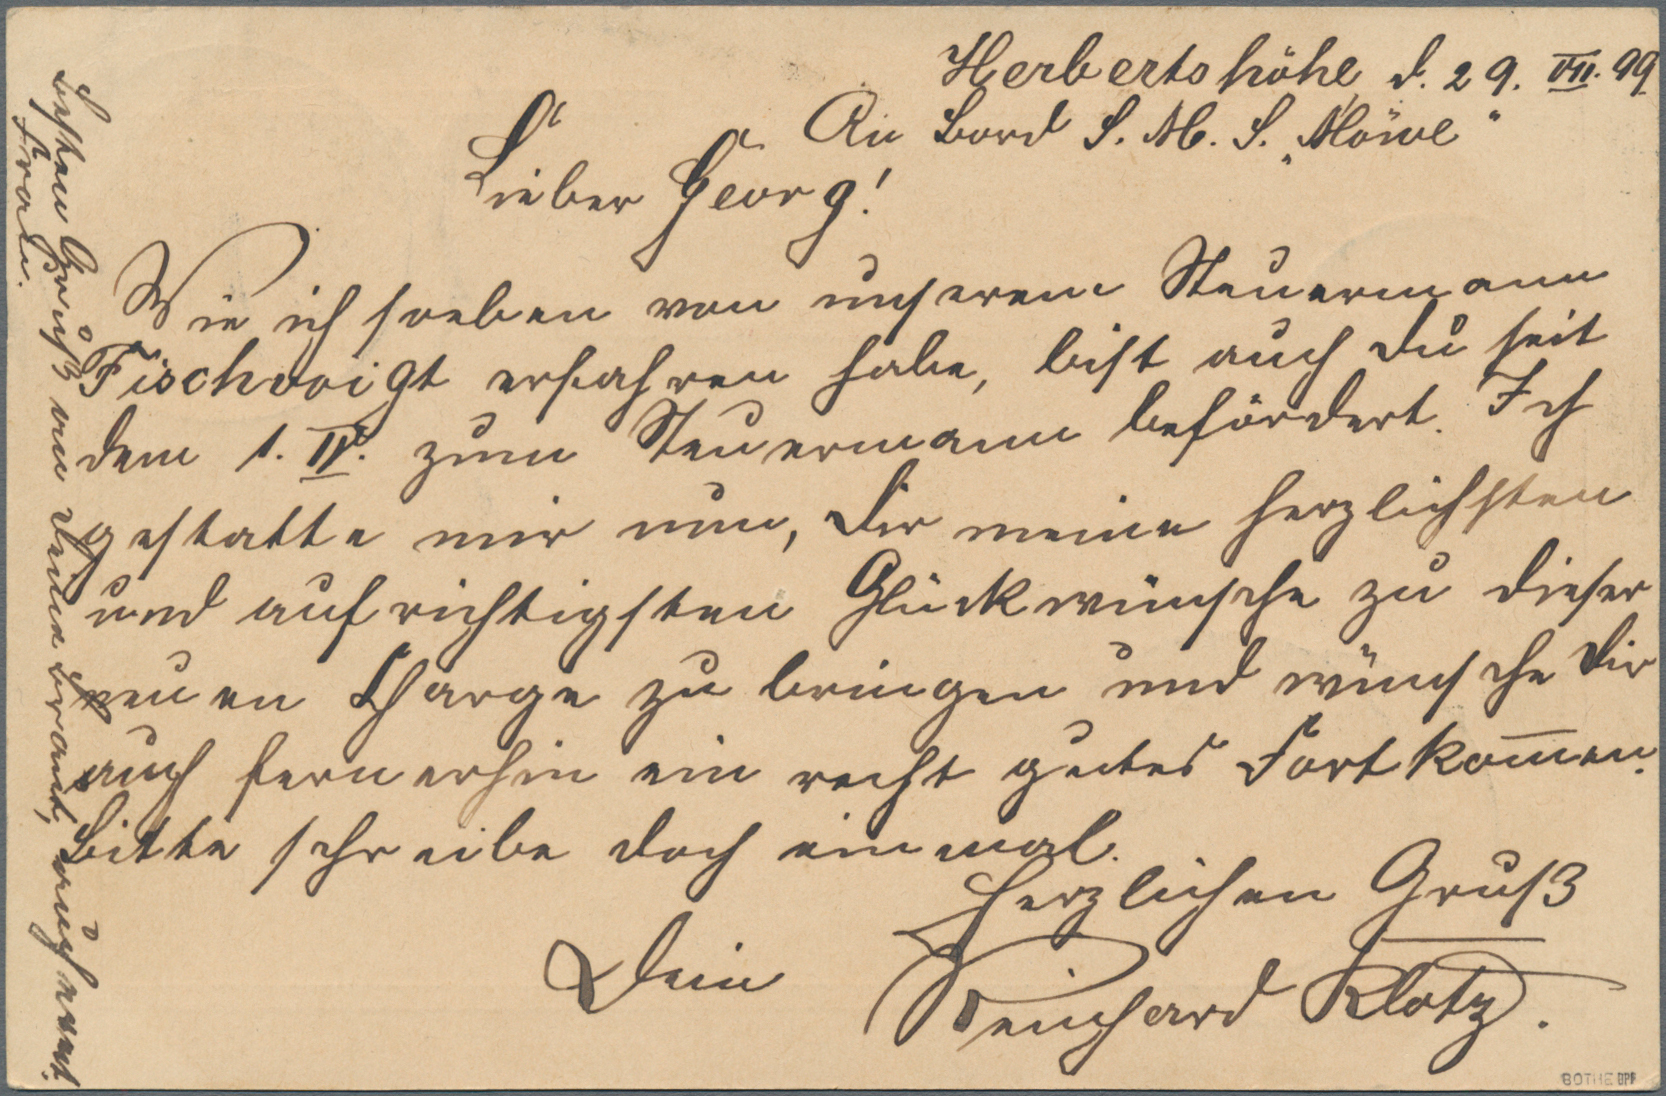 Herbertshöhe d. 29. VII. 99
An Bord S. M. S. „Möwe“
Lieber Georg!
Wie ich soeben von unserem Steuermann
Fischvoigt erfahren habe, bist auch du seit
dem 1. IV. zum Steuermann befördert. Ich
gestatte mir nun, Dir meine herzlichsten
und aufrichtigsten Glückwünsche zu dieser
neuen Charge zu bringen und wünsche Dir
auch fernerhin ein recht gutes Fortkom̅en.
Bitte schreibe doch einmal.
Herzlichen Gruß
Dein
Reinhard Klotz.
Besten Gruß an Deine Braut,
Frau.
BOTHE BPP